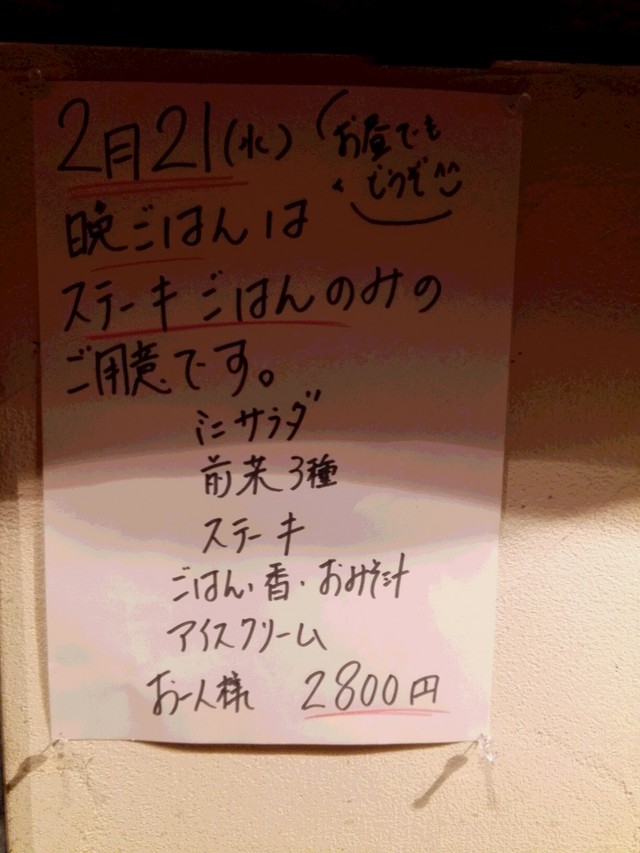 2月21(水)
お昼でも
どうぞ^^
晩ごはんは
ステーキごはんのみの
ご用意です。
ミニサラダ
前菜3種
ステーキ
ごはん・香・おみそ汁
アイスクリーム
お一人様 2800円